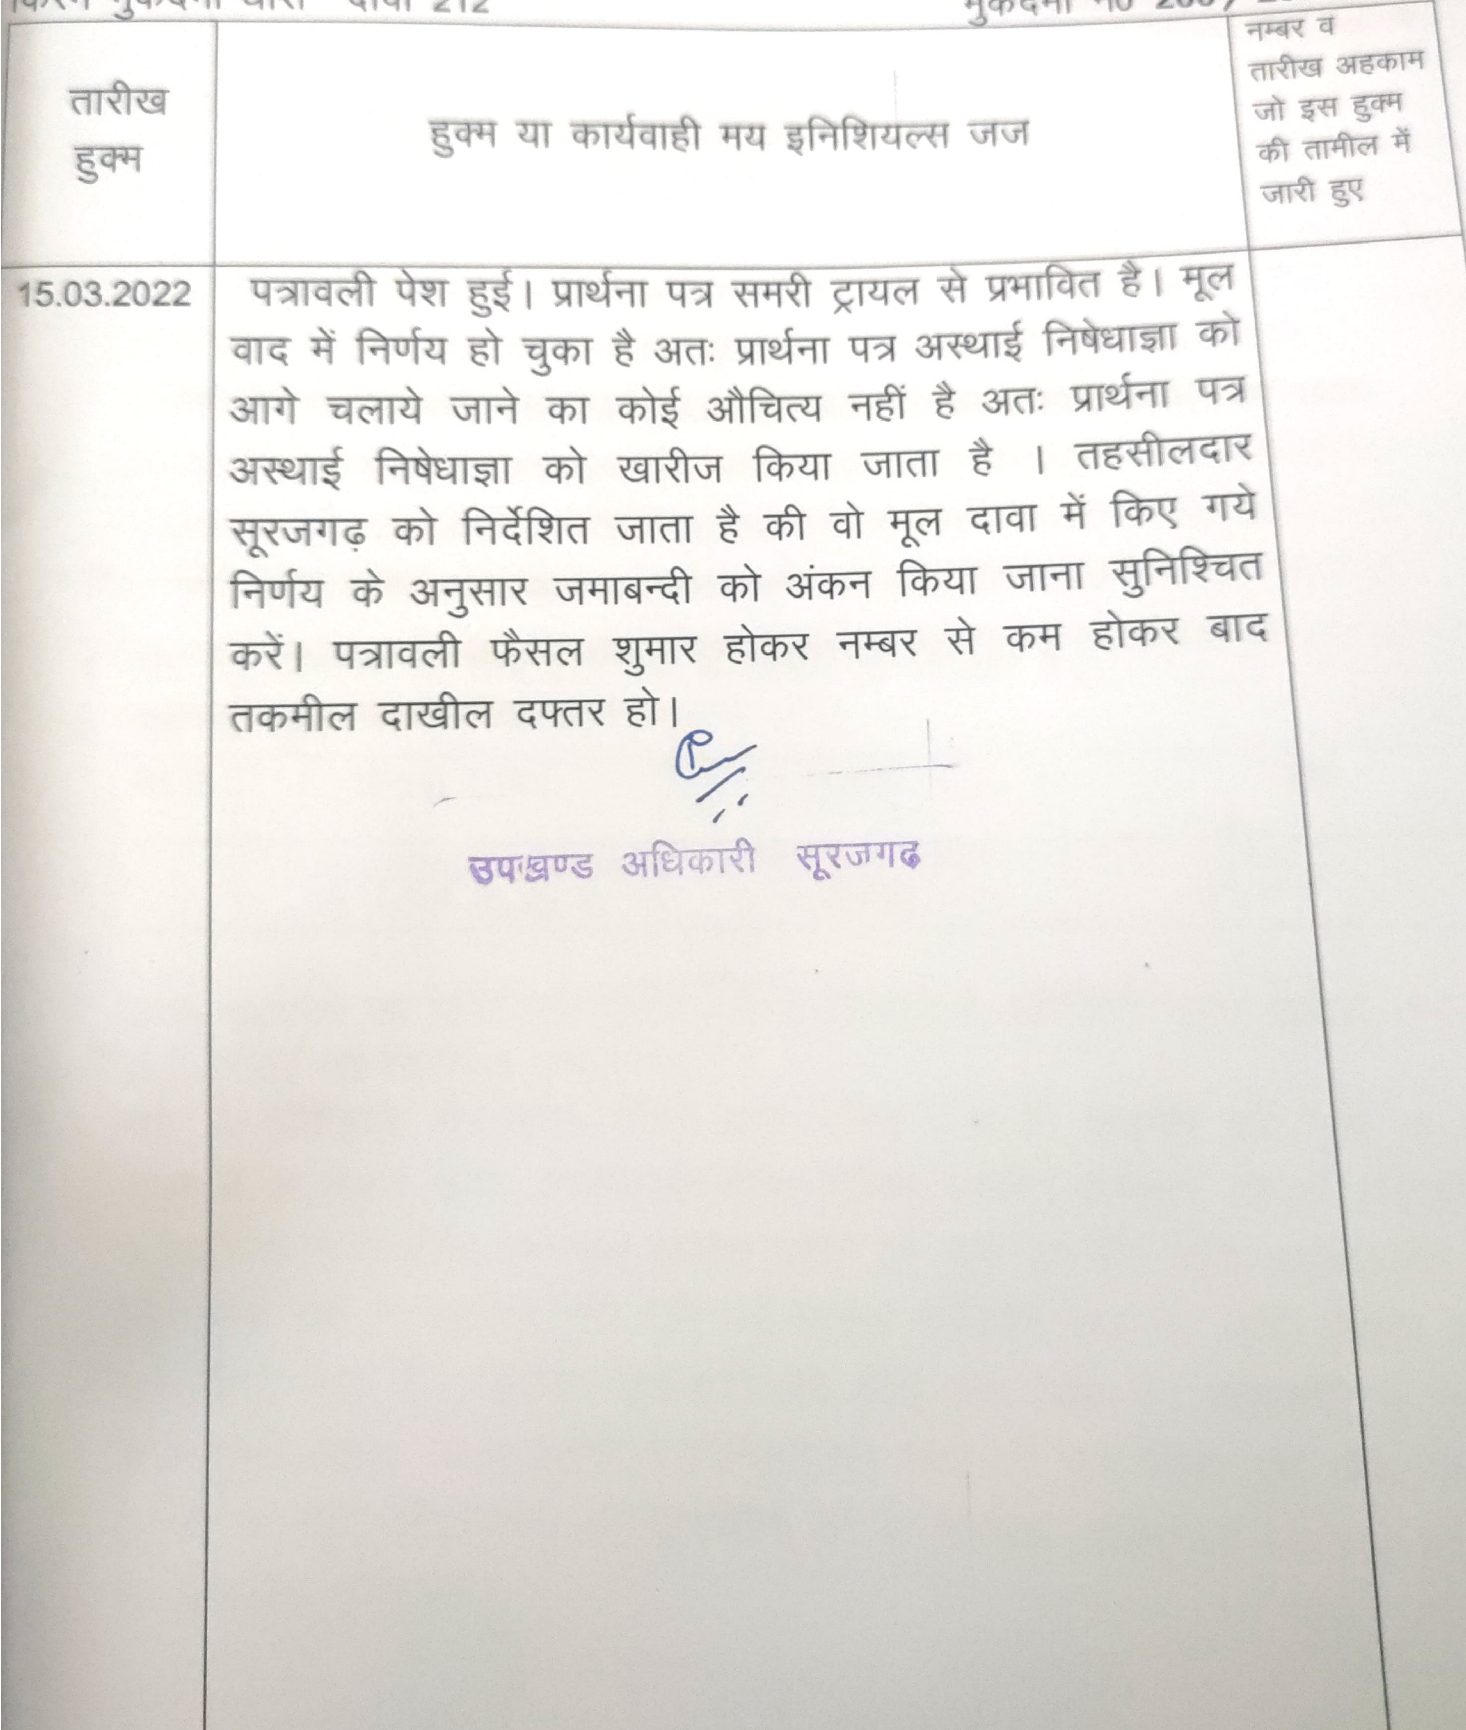 दावा 212
तारीख
हुक्म
हुक्म या कार्यवाही मय इनिशियल्स जज
नम्बर व
तारीख अहकाम
जो इस हुक्म
की तामील में
जारी हुए
15.03.2022
पत्रावली पेश हुई। प्रार्थना पत्र समरी ट्रायल से प्रभावित है। मूल
वाद में निर्णय हो चुका है अतः प्रार्थना पत्र अस्थाई निषेधाज्ञा को
आगे चलाये जाने का कोई औचित्य नहीं है अतः प्रार्थना पत्र
अस्थाई निषेधाज्ञा को खारीज किया जाता है । तहसीलदार
सूरजगढ़ को निर्देशित जाता है की वो मूल दावा में किए गये
निर्णय के अनुसार जमाबन्दी को अंकन किया जाना सुनिश्चित
करें। पत्रावली फैसल शुमार होकर नम्बर से कम होकर बाद
तकमील दाखील दफ्तर हो।
उपखण्ड अधिकारी सूरजगढ